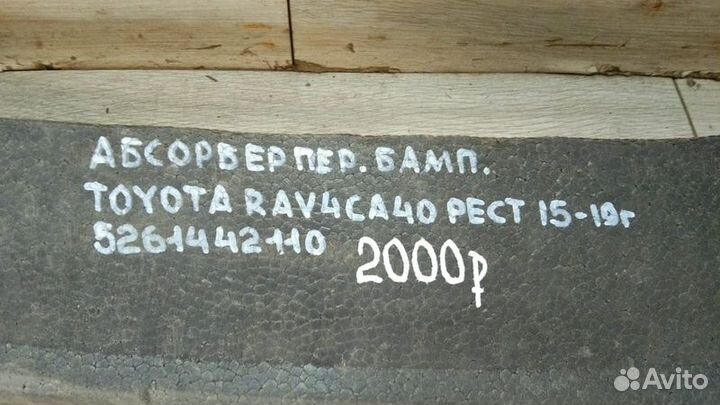 АБСОРБЕР ПЕР. БАМП.
TOYOTA RAV4CA40 РЕСТ 15-19г
5261442110 2000₽
Avito